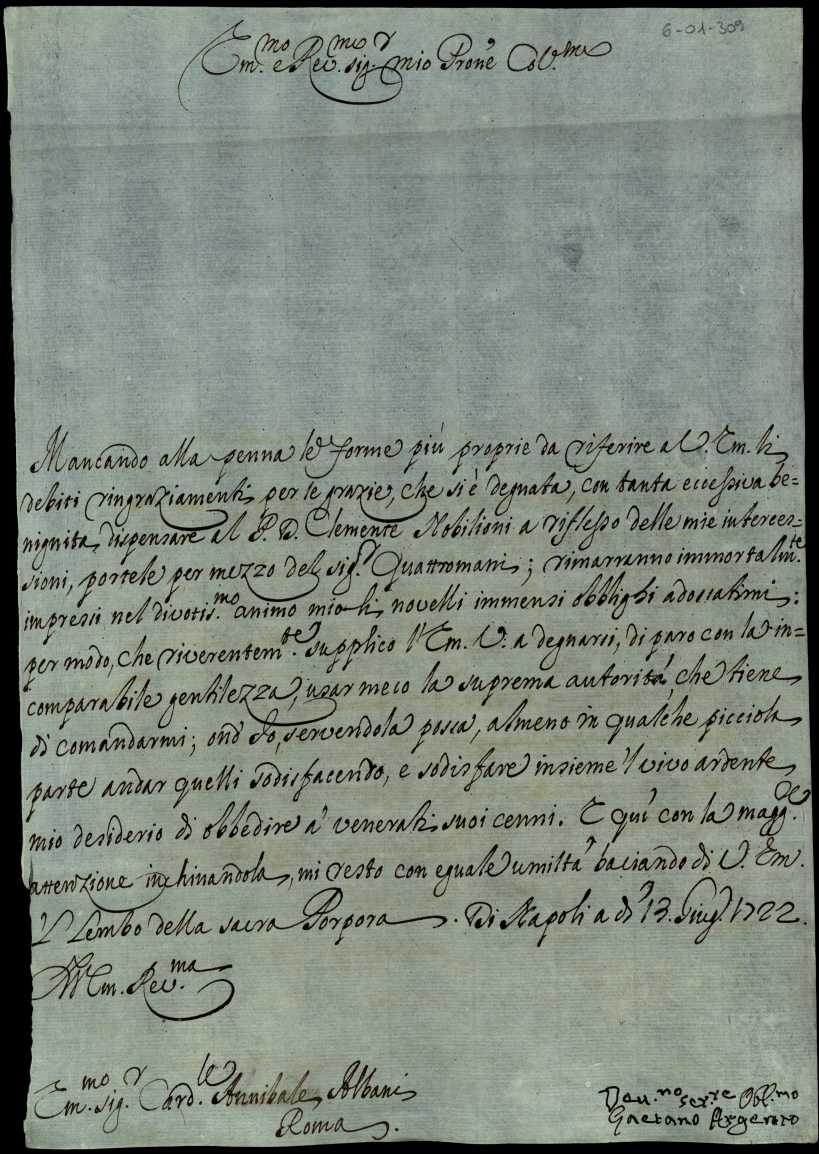 6-01-309
Em.mo e Rev.mo sig.r mio Prone Col.mo
Mancando alla penna le forme più proprie da riferire a V. Em. li
debiti ringraziamenti per le grazie, che si è degnata, con tanta eccessiva be=
nignità, dispensare al P. D. Clemente Nobilioni a riflesso delle mie interces=
sioni, portele per mezzo del sig.r Quattromani; rimarranno immortalm.te
impressi nel divotis.mo animo mio li novelli immensi obblighi adossatimi:
per modo, che riverentem.te supplico l'Em. V. a degnarsi, di paro con la in=
comparabile gentilezza, usar meco la suprema autorità, che tiene
di comandarmi; ond' Io, servendola possa, almeno in qualche picciola
parte andar quelli sodisfacendo, e sodisfare insieme 'l vivo ardente
mio desiderio di obbedire a' venerati suoi cenni. E quì con la magg.re
attenzione inchinandola, mi resto con eguale umiltà baciando di V. Em.
'l Lembo della sacra Porpora. Di Napoli a dì 13. Giug.o 1722.
V. Em. Rev.ma
Em.mo sig.r Card.le Annibale Albani
Roma
Dev.mo ser.re Obl.mo
Gaetano Argento